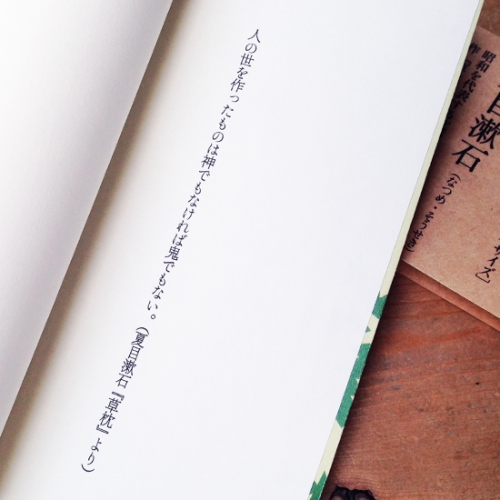 人の世を作ったものは神でもなければ鬼でもない。(夏目漱石『草枕』より)
目漱石
(なつめ・そうせき)
昭和を代表
サイズ]